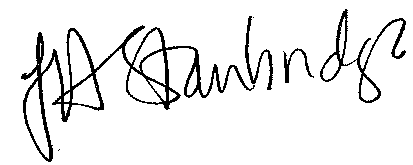 JA Stanbridge